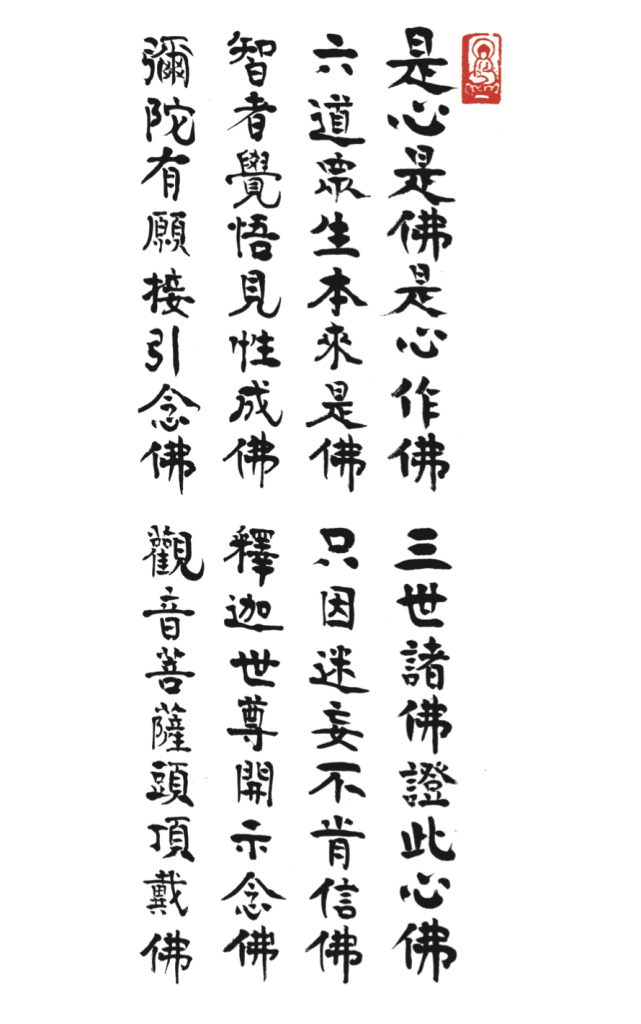 是心是佛是心作佛
三世諸佛證此心佛
六道眾生本來是佛
只因迷妄不肯信佛
智者覺悟見性成佛
釋迦世尊開示念佛
彌陀有願接引念佛
觀音菩薩頭頂戴佛